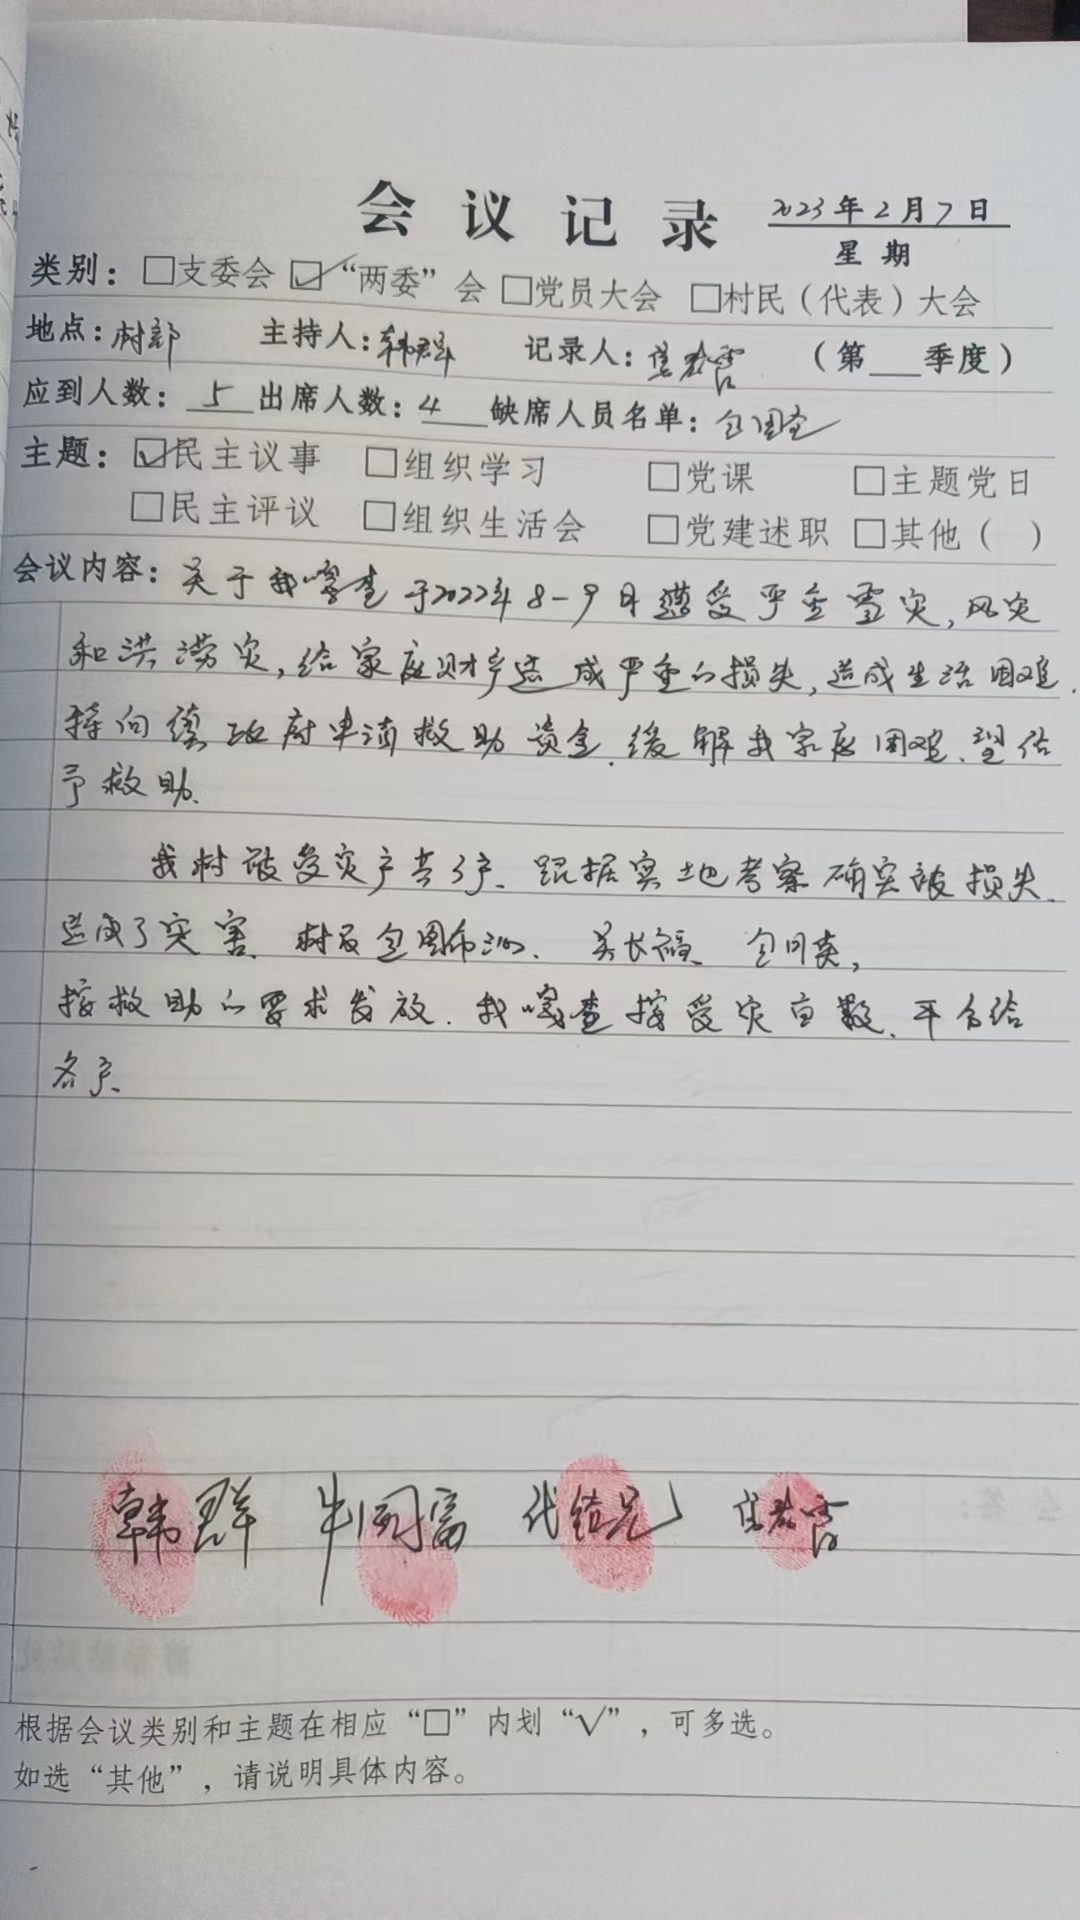 会议记录 2023年2月7日
星期
类别：□支委会 ☑“两委”会 □党员大会 □村民（代表）大会
地点：村部 主持人：韩群 记录人： （第___季度）
应到人数：5 出席人数：4 缺席人员名单：包图
主题：☑民主议事 □组织学习 □党课 □主题党日
□民主评议 □组织生活会 □党建述职 □其他（ ）
会议内容：关于我嘎查于2022年8-9月遭受严重雹灾,风灾
和洪涝灾,给家庭财产造成严重的损失,造成生活困难.
特向镇政府申请救助资金.缓解我家庭困难、望给
予救助.
我村被受灾户共3户、跟据实地考察确实被损失.
造成了灾害、村民包图布 、吴长福、包 ,
按救助的要求发放.我嘎查按受灾亩数、平分给
各户、
韩群
根据会议类别和主题在相应“□”内划“√”，可多选。
如选“其他”，请说明具体内容。